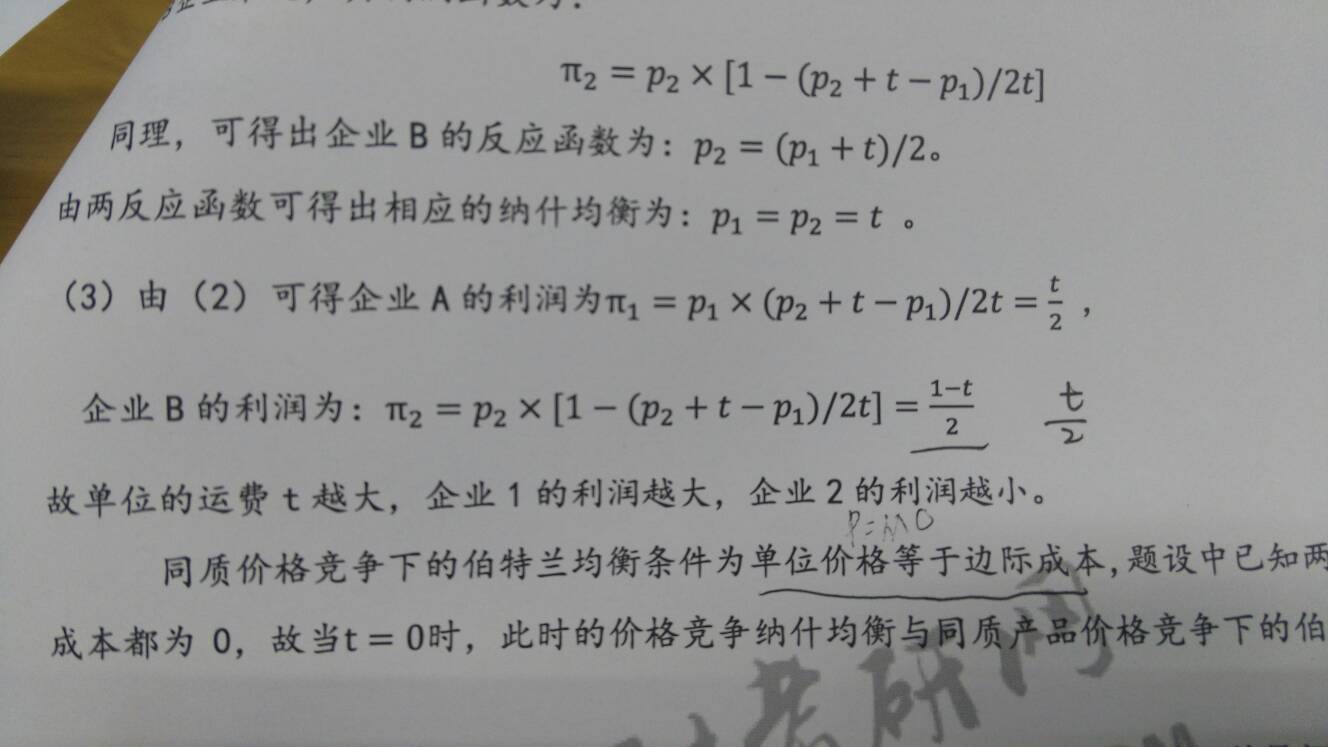 函数为:
π₂ = p₂ × [1 − (p₂ + t − p₁)/2t]
同理，可得出企业 B 的反应函数为：p₂ = (p₁ + t)/2。
由两反应函数可得出相应的纳什均衡为：p₁ = p₂ = t 。
（3）由（2）可得企业 A 的利润为π₁ = p₁ × (p₂ + t − p₁)/2t = t/2 ，
企业 B 的利润为：π₂ = p₂ × [1 − (p₂ + t − p₁)/2t] = 1−t/2 t/2
故单位的运费 t 越大，企业 1 的利润越大，企业 2 的利润越小。
同质价格竞争下的伯特兰均衡条件为单位价格等于边际成本,题设中已知两
成本都为 0，故当t = 0时，此时的价格竞争纳什均衡与同质产品价格竞争下的伯
考研网